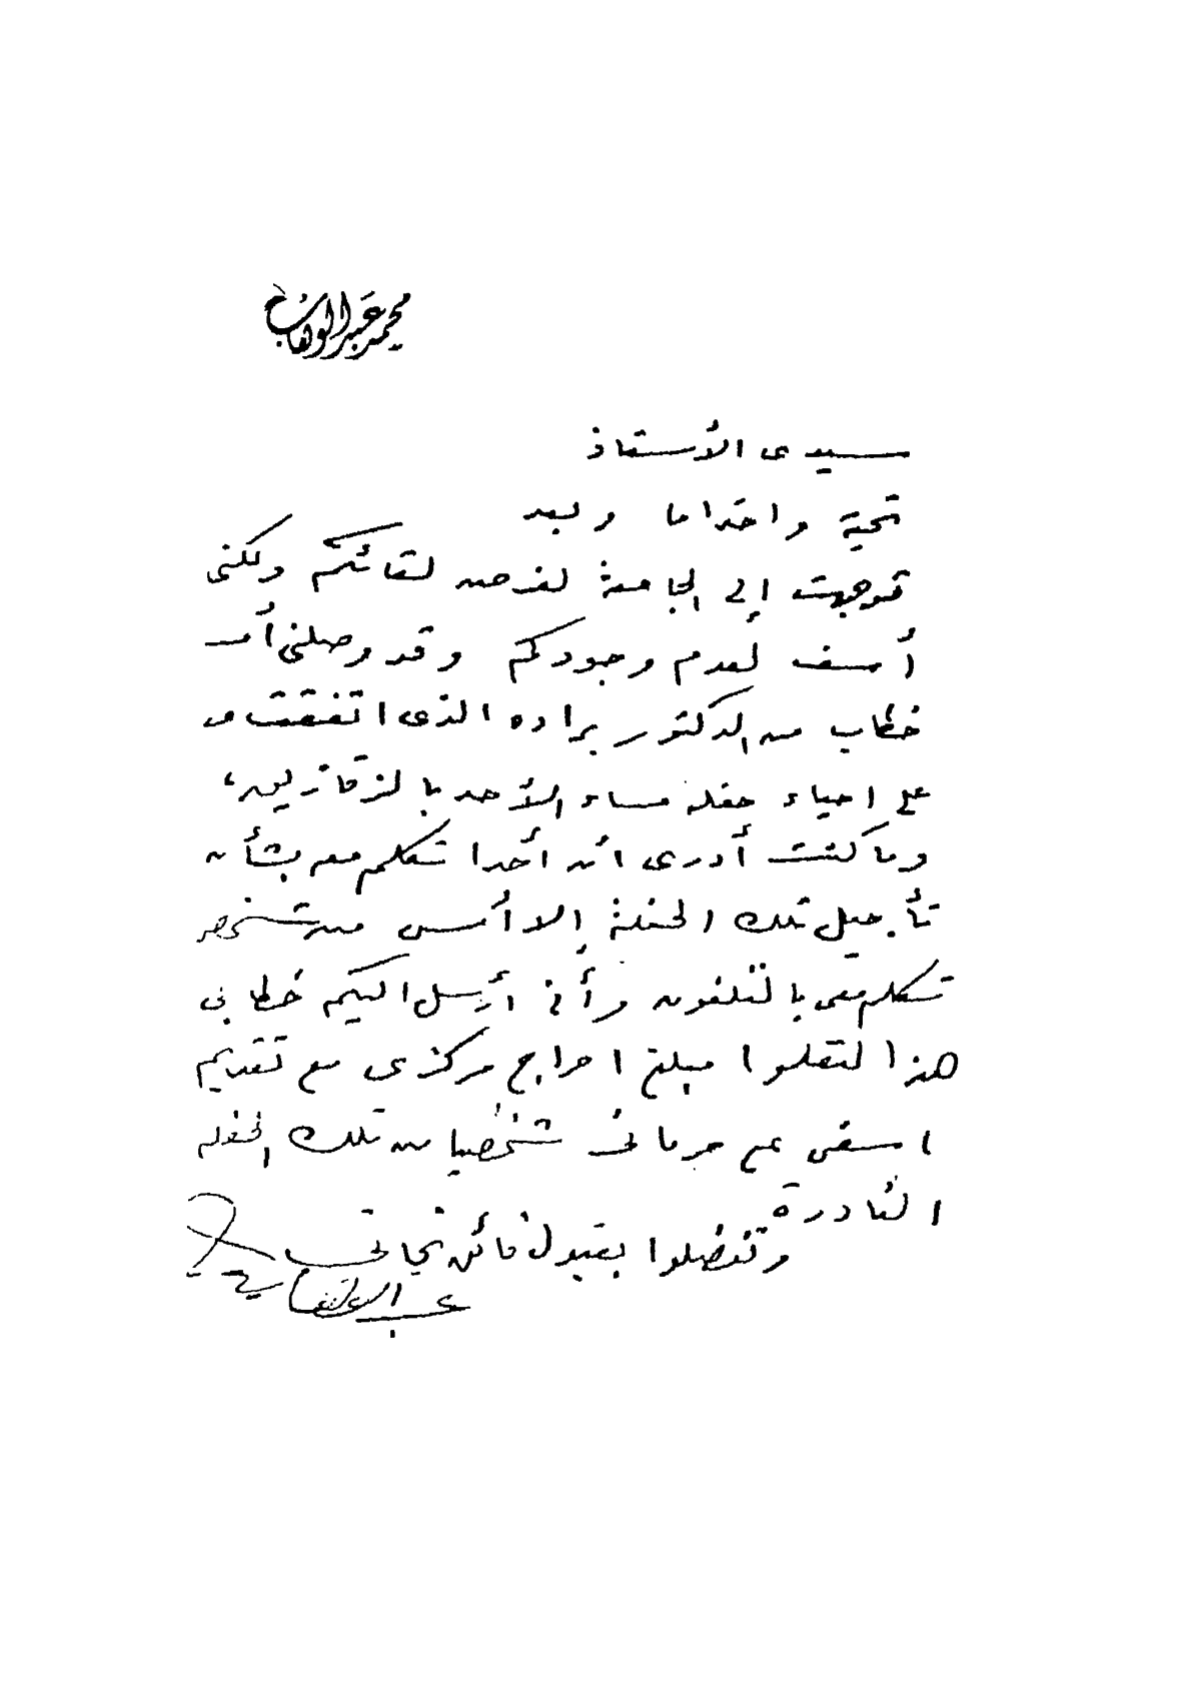 محمد عبد الوهاب
سيدى الأستاذ
تحية واحتراما وبعد
توجهت إلى الجامعة لفرصة لقائكم ولكنى
أسف لعدم وجودكم وقد وصلنى أمس
خطاب من الدكتور براده الذى اتفقت معه
على احياء حفلة مساء الأحد بالزقازيق،
وما كنت أدرى ان أحدا تكلم معه بشأن
تأجيل تلك الحفلة إلا أمس من شخص
تكلم معى بالتليفون وأنى أرسل اليكم خطابى
هذا لتعلموا مبلغ احراج مركزى مع تقديم
اسفى على حرمانى شخصيا من تلك الحفلة
النادرة
وتفضلوا بقبول فائق تحياتى